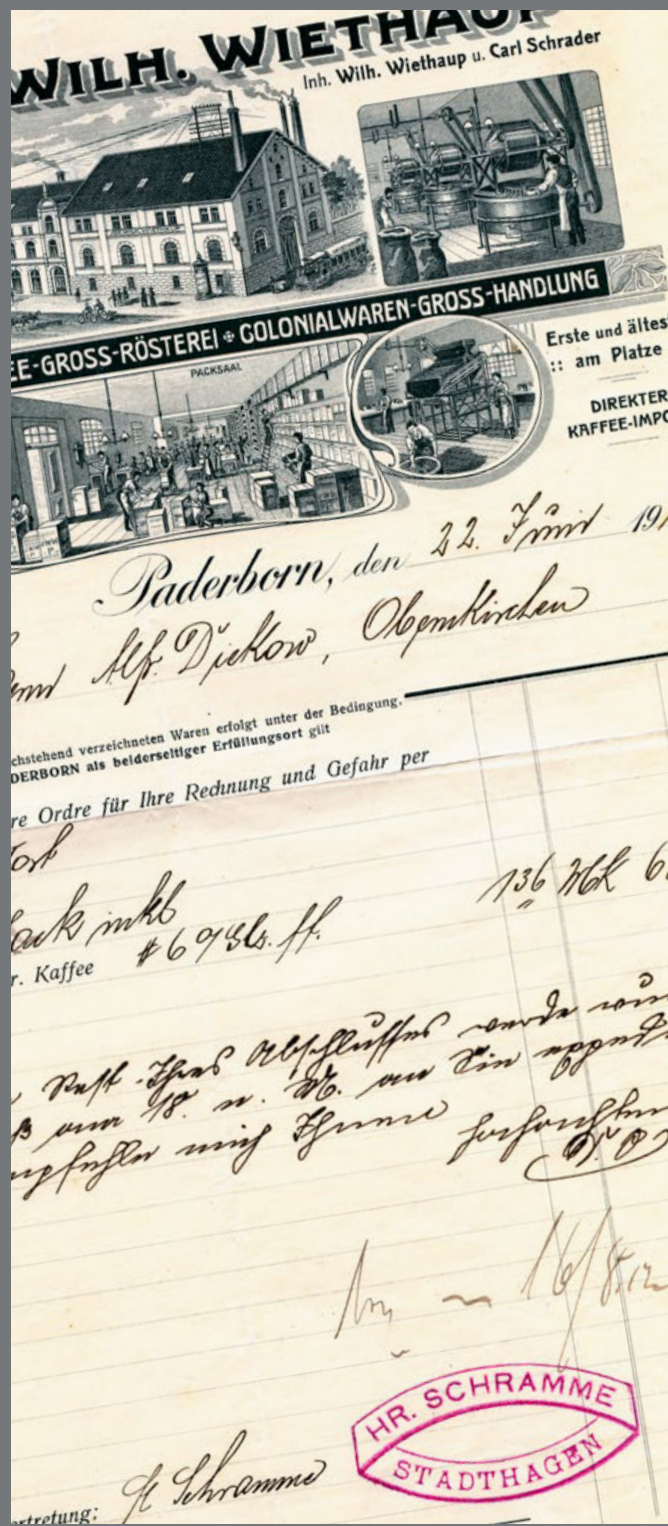 WILH. WIETHAUP
Inh. Wilh. Wiethaup u. Carl Schrader
EE-GROSS-RÖSTEREI COLONIALWAREN-GROSS-HANDLUNG
PACKSAAL
Erste und ältes
:: am Platze
DIREKTER
KAFFEE-IMPO
Paderborn, den 22. Juni 19
Alfr. Dickow, Obernkirchen
chstehend verzeichneten Waren erfolgt unter der Bedingung,
DERBORN als beiderseitiger Erfüllungsort gilt
re Ordre für Ihre Rechnung und Gefahr per
136 Mk 6
r. Kaffee
Rest Ihres Abschlusses werde
am 18. v. M. an Sie
mpfehle mich Ihnen
HR. SCHRAMME
STADTHAGEN
ertretung: Schramme